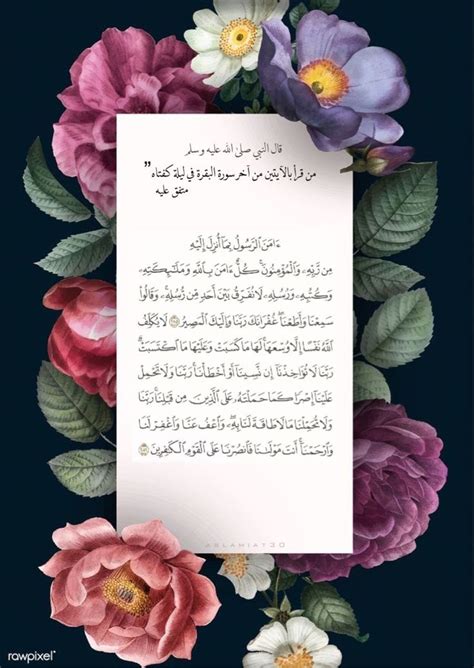 قال النبي صلى الله عليه وسلم
من قرأ بالآيتين من آخر سورة البقرة في ليلة كفتاه"
متفق عليه
ءَامَنَ ٱلرَّسُولُ بِمَآ أُنزِلَ إِلَيْهِ
مِن رَّبِّهِۦ وَٱلْمُؤْمِنُونَۚ كُلٌّ ءَامَنَ بِٱللَّهِ وَمَلَٰٓئِكَتِهِۦ
وَكُتُبِهِۦ وَرُسُلِهِۦ لَا نُفَرِّقُ بَيْنَ أَحَدٍ مِّن رُّسُلِهِۦۚ وَقَالُوا۟
سَمِعْنَا وَأَطَعْنَاۖ غُفْرَانَكَ رَبَّنَا وَإِلَيْكَ ٱلْمَصِيرُ ٢٨٥ لَا يُكَلِّفُ
ٱللَّهُ نَفْسًا إِلَّا وُسْعَهَاۚ لَهَا مَا كَسَبَتْ وَعَلَيْهَا مَا ٱكْتَسَبَتْۗ
رَبَّنَا لَا تُؤَاخِذْنَآ إِن نَّسِينَآ أَوْ أَخْطَأْنَاۚ رَبَّنَا وَلَا تَحْمِلْ
عَلَيْنَآ إِصْرًا كَمَا حَمَلْتَهُۥ عَلَى ٱلَّذِينَ مِن قَبْلِنَاۚ رَبَّنَا
وَلَا تُحَمِّلْنَا مَا لَا طَاقَةَ لَنَا بِهِۦۖ وَٱعْفُ عَنَّا وَٱغْفِرْ لَنَا
وَٱرْحَمْنَآۚ أَنتَ مَوْلَىٰنَا فَٱنصُرْنَا عَلَى ٱلْقَوْمِ ٱلْكَٰفِرِينَ ٢٨٦
ASLAMIAT30
rawpixel